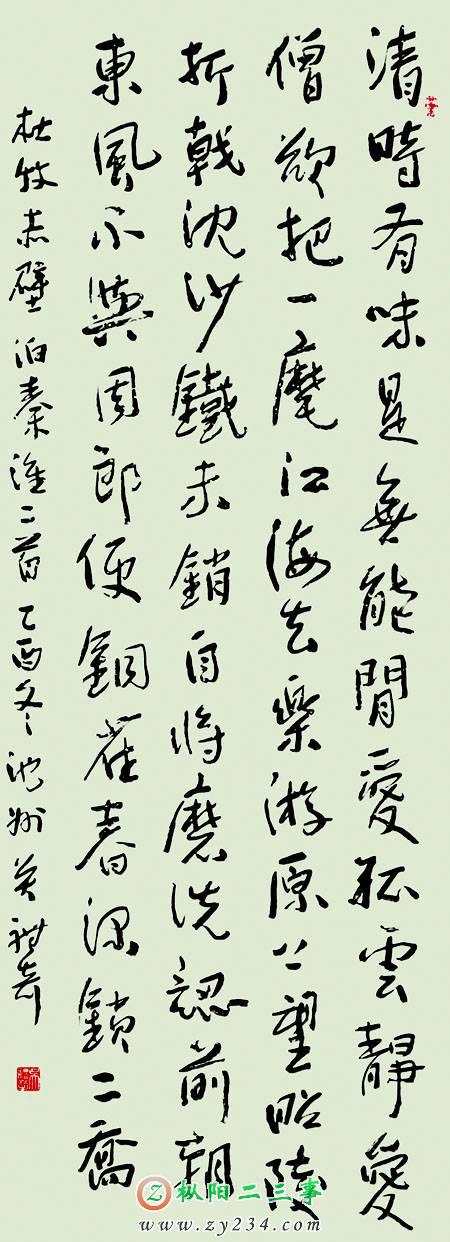 清時有味是無能閒愛孤雲靜愛
僧欲把一麾江海去樂游原上望昭陵
折戟沈沙鐵未銷自將磨洗認前朝
東風不與周郎便銅雀春深鎖二喬
杜牧赤壁泊秦淮二首乙酉冬池州吳奇
枞阳二三事
www.zy234.com